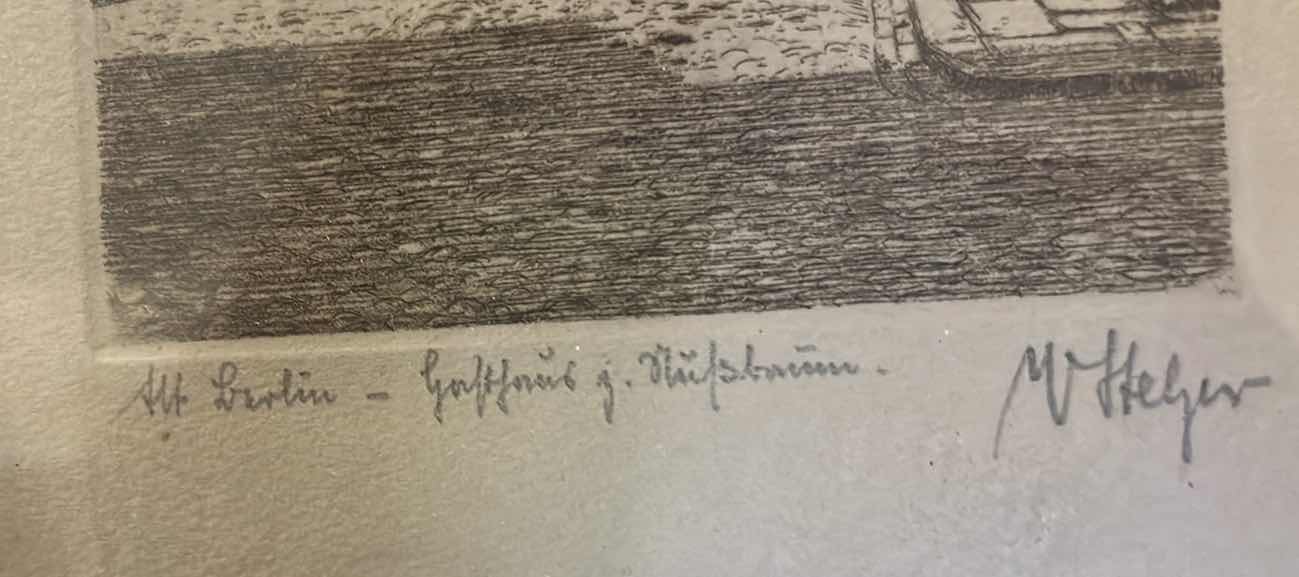 Alt Berlin – Gasthaus z. Nußbaum.
W Stelzer